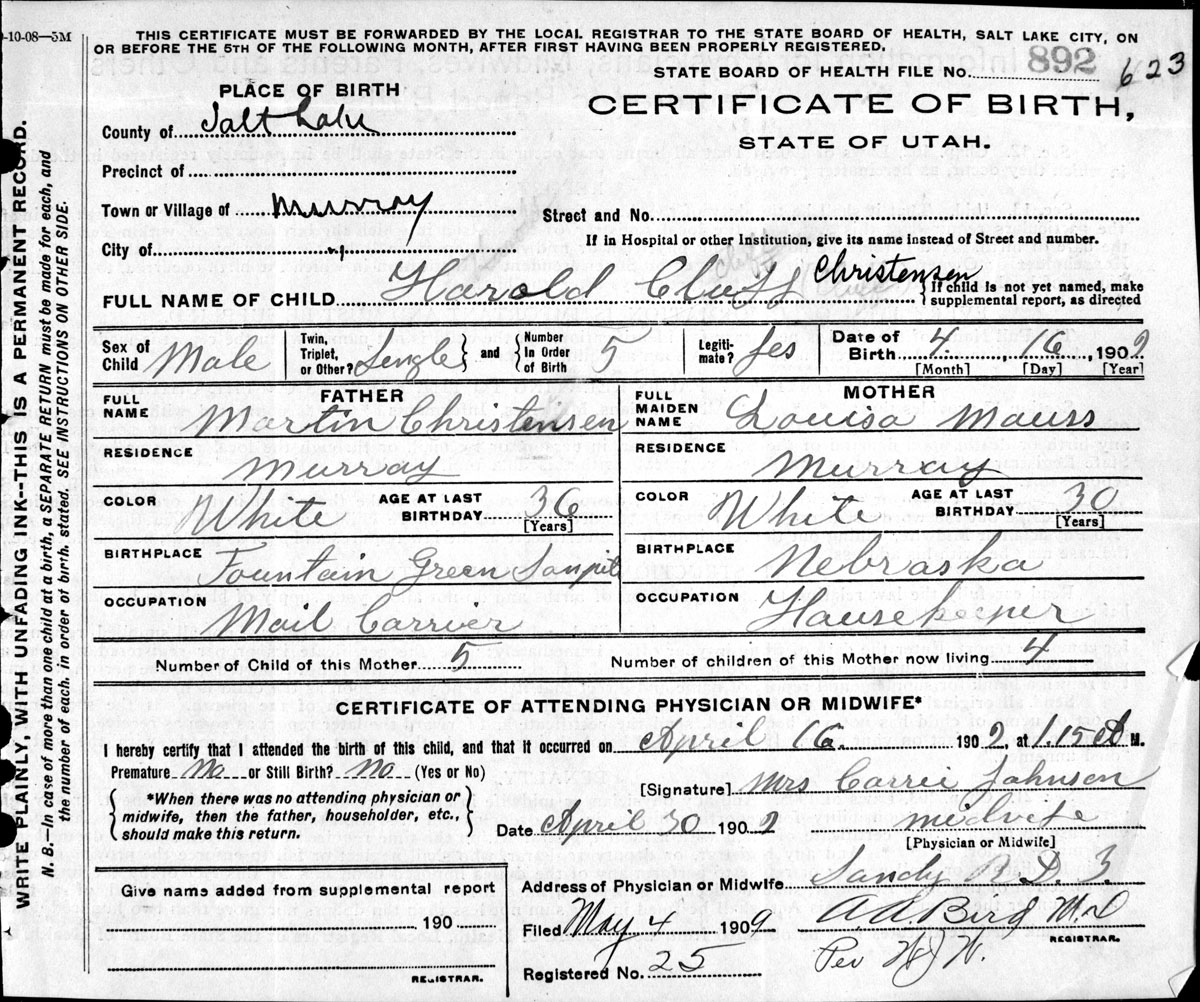 -10-08—3M
THIS CERTIFICATE MUST BE FORWARDED BY THE LOCAL REGISTRAR TO THE STATE BOARD OF HEALTH, SALT LAKE CITY, ON
OR BEFORE THE 5TH OF THE FOLLOWING MONTH, AFTER FIRST HAVING BEEN PROPERLY REGISTERED.
STATE BOARD OF HEALTH FILE No. 892 623
PLACE OF BIRTH
CERTIFICATE OF BIRTH,
STATE OF UTAH.
County of Salt Lake
Precinct of
Town or Village of Murray
Street and No.
City of
If in Hospital or other Institution, give its name instead of Street and number.
FULL NAME OF CHILD Harold Cluff Christensen
{If child is not yet named, make
supplemental report, as directed
Sex of Child Male
Twin, Triplet, or Other? Single and Number In Order of Birth 5
Legiti-mate? Yes
Date of Birth 4 16 1909
[Month] [Day] [Year]
FATHER
FULL NAME Martin Christensen
MOTHER
FULL MAIDEN NAME Louisa Mauss
RESIDENCE Murray
RESIDENCE Murray
COLOR White AGE AT LAST BIRTHDAY 36 [Years]
COLOR White AGE AT LAST BIRTHDAY 30 [Years]
BIRTHPLACE Fountain Green Sanpete
BIRTHPLACE Nebraska
OCCUPATION Mail Carrier
OCCUPATION Housekeeper
Number of Child of this Mother 5 Number of children of this Mother now living 4
CERTIFICATE OF ATTENDING PHYSICIAN OR MIDWIFE*
I hereby certify that I attended the birth of this child, and that it occurred on April 16. 1909, at 1.15 A M.
Premature No or Still Birth? No (Yes or No)
{*When there was no attending physician or
midwife, then the father, householder, etc.,
should make this return.}
[Signature] Mrs Carrie Johnson
Date April 30 1909 midwife
[Physician or Midwife]
Give name added from supplemental report
190
REGISTRAR.
Address of Physician or Midwife Sandy R D. 3
Filed May 4 1909 A A Bird M.D
REGISTRAR.
Registered No. 25 Per
WRITE PLAINLY, WITH UNFADING INK--THIS IS A PERMANENT RECORD.
N. B.—In case of more than one child at a birth, a SEPARATE RETURN must be made for each, and
the number of each, in order of birth, stated. SEE INSTRUCTIONS ON OTHER SIDE.